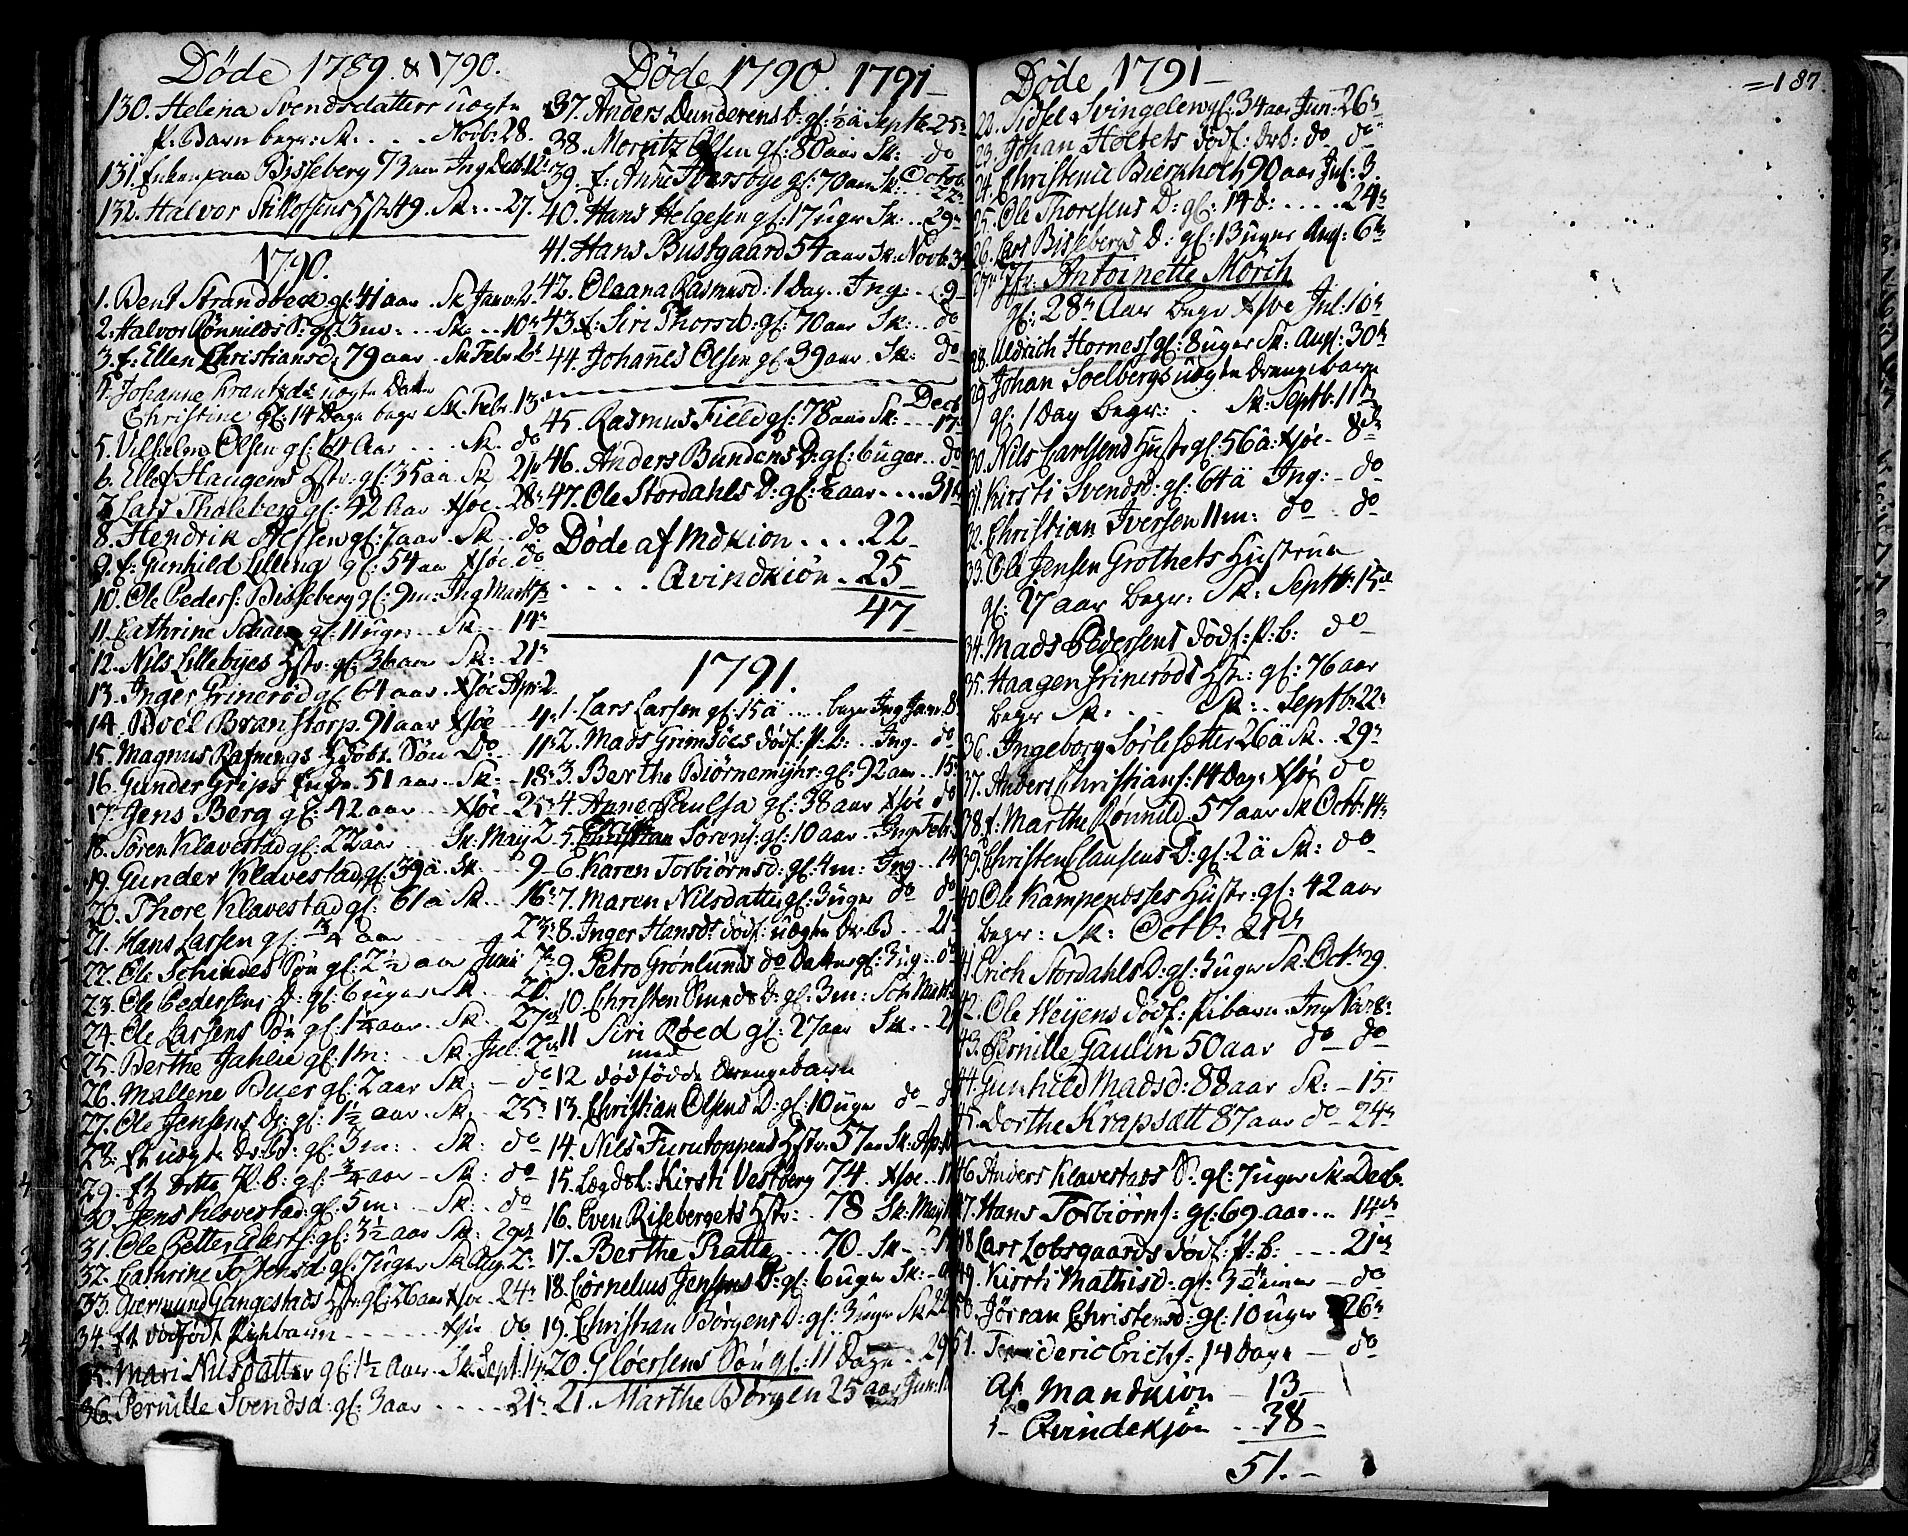 Døde 1789 & 1790.
130. Helena Svendsdatters uægte
P. Barn begr: Sk: . . . Novb: 28.
131. Enken paa Bisseberg 73 aar Ing Decb: 12
132. Halvor Stillofsens Hstr 49. Sk: . . 27.
1790.
1. Bent Strandbek gl: 41 aar . Sk Janv: 2
2. Halvor Rønnilds S: gl: 3 m: . . Sk: . . 10
3. E: Ellen Christiansd: 79 aar . Sk Febr: 2
4. Johanne Krantzds uægte Datter
Christine gl: 14 Dage begr Sk. Febr. 13
5. Vilhelms Olsen gl: 64 Aar . . . Sk. do
6. Ellef Haugens Hstr. gl: 35 aar Sk 21
7. Lars Thaleberg gl: 42 Aar Xsøe . 28
8. Hendrik gl: 7 aar . Sk . do
9. E: Gunhild Lilleng gl: 54 aar Xsøe . do
10. Ole Peders: Bisseberg gl: 9 m: Ing Marti 7
11. Cathrine gl: 11 uger . . Sk . . 14
12. Nils Lillebyes Hstr. gl: 36 aar Sk: . 21
13. Inger Grinerød gl: 64 aar . Xsøe Apr: 2
14. Boel Branstorp. 91 aar Xsøe . . 4
15. Magnus Rafnengs Søn Do . . 11
16. Gunder Grips Enke. 51 aar . Sk: . . 18
17. Jens Berg gl: 42 aar . . Xsøe . 25
18. Søren Klavestad gl: 22 aar . . . Sk: May 2
19. Gunder Klavestad gl: 39 a Sk. . . 9
20. Thore Klavestad gl: 61 a Sk . . 16
21. Hans Larsen gl: aar . . . . . 23
22. Ole Schindes Søn gl: 2 1/2 aar Junii 7
23. Ole Pedersens D: gl: 6 uger Sk . . 20
24. Ole Larsens Søn gl: 1 1/4 aar . Sk . . 27
25. Berthe Jahlie gl: 1 m: . . Sk Jul: 2
26. Mallene Buer gl: 2 aar Sk: — do
27. Ole Jensens D: gl: 1 1/2 aar . Sk: . . 25
28. Et uægte Dr: B: gl: 3 m: . Sk: do
29. Et ditto P. B: gl: 3/4 aar . Sk: do
30. Jens Klavestad: gl: 5 m: . . Sk: . do
31. Ole Petter gl: 3 1/2 aar Sk: 29
32. Cathrine gl: 7 uger Sk Aug. 2
33. Giermund Gangestads Hstr: gl: 26 aar Xsøe . 24
34. Et dødfødt Pigebarn — — — Xsøe do
35. Mari Nilsdatter gl: 1 1/2 Aar . Sk: Sept. 14
36. Pernille Svendsd: gl: 3 aar . . . . . 21
Døde 1790. 1791
37. Anders Dunderens D: gl: 1/2 a Septb: 25
38. Moritz Olsen gl: 80 aar Sk: do
39. E: Anne gl: 70 aar Sk: Octob: 22
40. Hans Helgesen gl: 17 uger Sk: . . 29
41. Hans Bustgaard 54 aar Sk: Novb: 3
42. Olaana Rasmusd: 1 Dag . Ing: . . 9
43. E: Siri Thorsd: gl: 70 aar Sk: . . do
44. Johannes Olsen gl: 39 aar . Sk: do
Decb:
45. Rasmus Field gl: 78 aar Sk: . . . 17
46. Anders Bundens D: gl: 6 uger . . do
47. Ole Stordahls D: gl: 1/2 aar . . . . 31
Døde af Mdkiøn . . . . 22
. . . . . Qvindkiøn . 25
47
1791.
1. Lars Larsen gl: 15 a . . . . begr Ing Janv. 8
2. Mads Grimsøes dødf: P: b: . . Ing. do
3. Berthe Biørnemyhr: gl: 92 aar . . 15
4. Anne Paulsa gl: 38 aar Xsøe do
5. Christian Sørens: gl: 10 aar . Ing Febr:
6. Karen Torbiørnsd: gl: 4 m: Ing . . 14
7. Maren Nilsdatter gl: 3 uger do do
8. Inger Hansds dødf: uægte Dr: B . . 21
9. Petro Grønlunds do Datter gl: 3 ug: do
10. Christen Smeds D: gl: 3 m: Sch Mart:
11 Siri Røed gl: 27 aar Sk . . 2
med
12 dødfødde Drengebarn
13. Christian Olsens D: gl: 10 uger do
14. Nils Furutoppens Hstr. 57 aar Sk: Apr:
15. Lægdsl: Kirsti Vestberg 74. Xsøe . 1
16. Even Risebergets Hstr: . . 78 Sk: May
17. Berthe Ratta . . . 70. Sk
18. Cornelius Jensens D: gl: 6 uger Sk:
19. Christian Børgens D: gl: 3 uger Sk 22
20. Gløersens Søn gl: 11 Dage . . 29
21. Marthe Børgen 25 aar Jun:
Døde 1791
= 187.
22. Sidsel Svingelen gl: 34 aar Jun: 26
23. Johan Holtets dødf: Dr: B: do do
24. Christence Bierkholt 90 aar Jul: 3.
25. Ole Thoresens D: gl: 14 d: . . . . 24
26. Lars Bissebergs D: gl: 13 uger Aug: 6
27. Jfr: Antoinette Mörch
gl: 28 Aar begr Xsøe Jul: 10
28. Uldrich Horness gl: 8 uger Sk: Aug: 30
29. Johan Soelbergs uægte Drengebarn
gl: 1 Dag begr: . Sk: Septb: 11
30. Nils Carlsens Hustr gl: 56 a: Xsøe - 8
31. Kirsti Svendsd: gl: 64 a Ing: - do
32. Christian Iversen 11 m: do do
33. Ole Jensen Grothets Hustrue
gl: 27 aar begr: Sk: Septb: 15
34. Mads Pedersens dødf: P: b: do
35. Haagen Grinerøds Hstr: gl: 76 aar
begr Sk: . . Sk: . Septb: 22
36. Ingeborg Sørlesætter 26 a Sk . . 29
37. Anders Christians: 14 Dage Xsøe do
38. E: Marthe Rønnild 57 aar Sk Octb: 14
39. Christen Clausens D: gl: 2 a Sk: do
40 Ole Kampenesses Hustr: gl: 42 aar
begr: Sk: Octb: 21
41 Erich Stordahls D: gl: 3 uger Sk: Octb 29.
42. Ole Weyens dødf: Pi: barn . Ing Nov: 8
43. Pernille Gaulin 50 aar do do
44. Gunhild Madsd: 88 aar Sk: — 15
45. Dorthe Krapsætt 87 aar do 24
46. Anders Klavestads S: gl: 7 uger Sk Decb.
47. Hans Torbiørns: gl: 69. aar . . . 14
48 Lars Lobsgaards dødf: P: b: . . . 21
49. Kirsti Mathisd: gl: 3 timer — do
50. Jøran Christensd: gl: 10 uger 26
51. Frideric Erichs: 14 Dage — do
Af Mandkiøn — 13
Qvindekjøn . . 38
51.